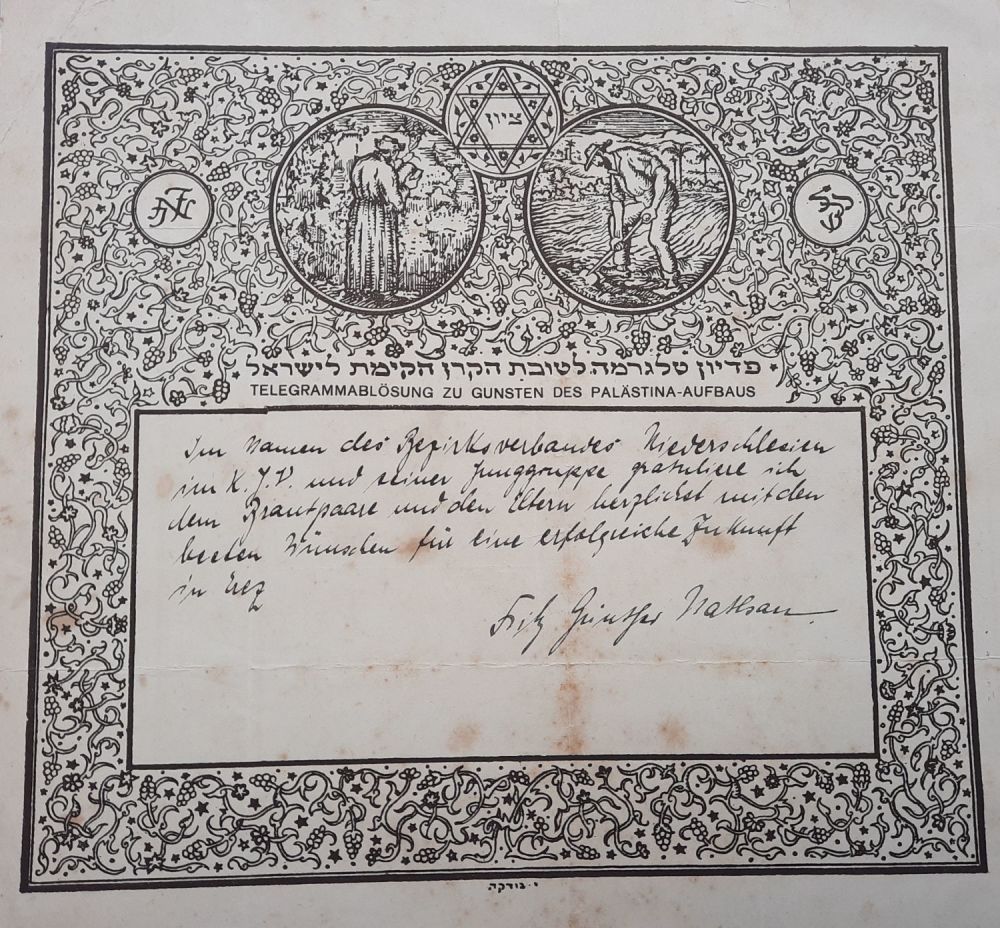 ציון
JNF
קקל
פדיון טלגרמה לטובת הקרן הקימת לישראל
TELEGRAMMABLÖSUNG ZU GUNSTEN DES PALÄSTINA-AUFBAUS
Im Namen des Bezirksverbandes Niederschlesien
im K.J.V. und seiner Junggruppe gratuliere ich
dem Brautpaare und den Eltern herzlichst mit den
besten Wünschen für eine erfolgreiche Zukunft
in Erez
Fritz Günther Nathan
י. בודקה